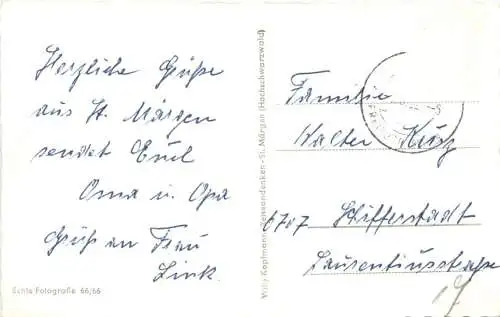 Herzliche Grüße
aus St. Märgen
sendet Euch
Oma u. Opa
Gruß an Frau
Link.
Echte Fotografie 66/66
Willy Kopfmann, Reiseandenken - St. Märgen (Hochschwarzwald)
Familie
Walter Kurz
6707 Schifferstadt
Laurentiusstraße